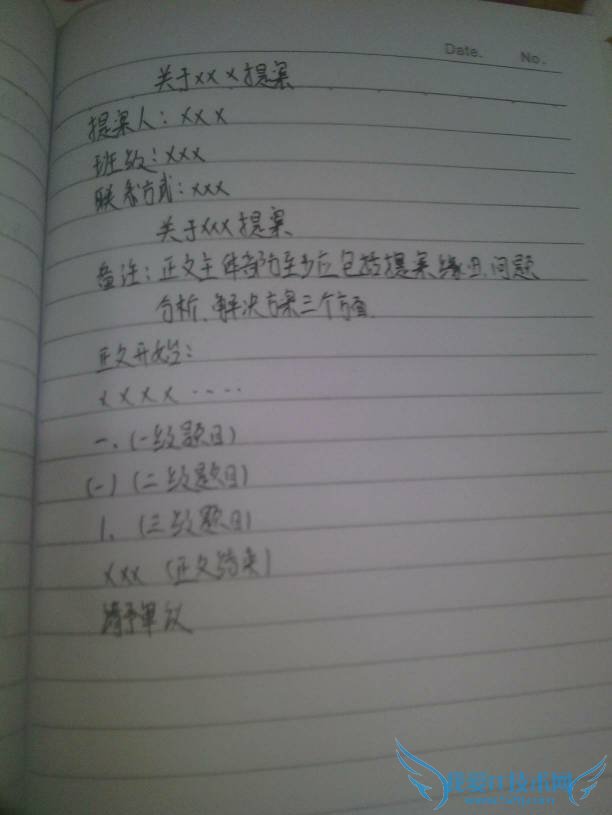 Date.    No.
关于xx x提案
提案人：xxx
班级：xxx
联系方式：xxx
关于xxx提案
备注：正文主体部分至少应包括提案缘由、问题
分析、解决方案三个方面.
正文开始：
xxxx ....
一、(一级题目)
(一) (二级题目)
1、(三级题目)
xxx (正文结束)
请予审议
技术网